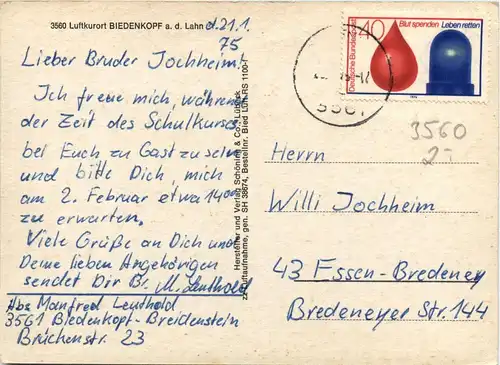 3560 Luftkurort BIEDENKOPF a. d. Lahn
d. 21.1.
75
Lieber Bruder Jochheim!
Ich freue mich, während
der Zeit des Schulkurses
bei Euch zu Gast zu sein
und bitte Dich, mich
am 2. Februar etwa 14⁰⁰
zu erwarten.
Viele Grüße an Dich und
Deine lieben Angehörigen
sendet Dir Br. M. Leuthold
Abs Manfred Leuthold
3561 Biedenkopf-Breidenstein
Brückenstr. 23
Hersteller und Verlag Schöning & Co., Lübeck
gen. SH 38674, Bestellnr. Bied Luft RS 1100
Deutsche Bundespost
40
Blut spenden Leben retten
3560
Herrn
Willi Jochheim
43 Essen-Bredeney
Bredeneyer Str. 144